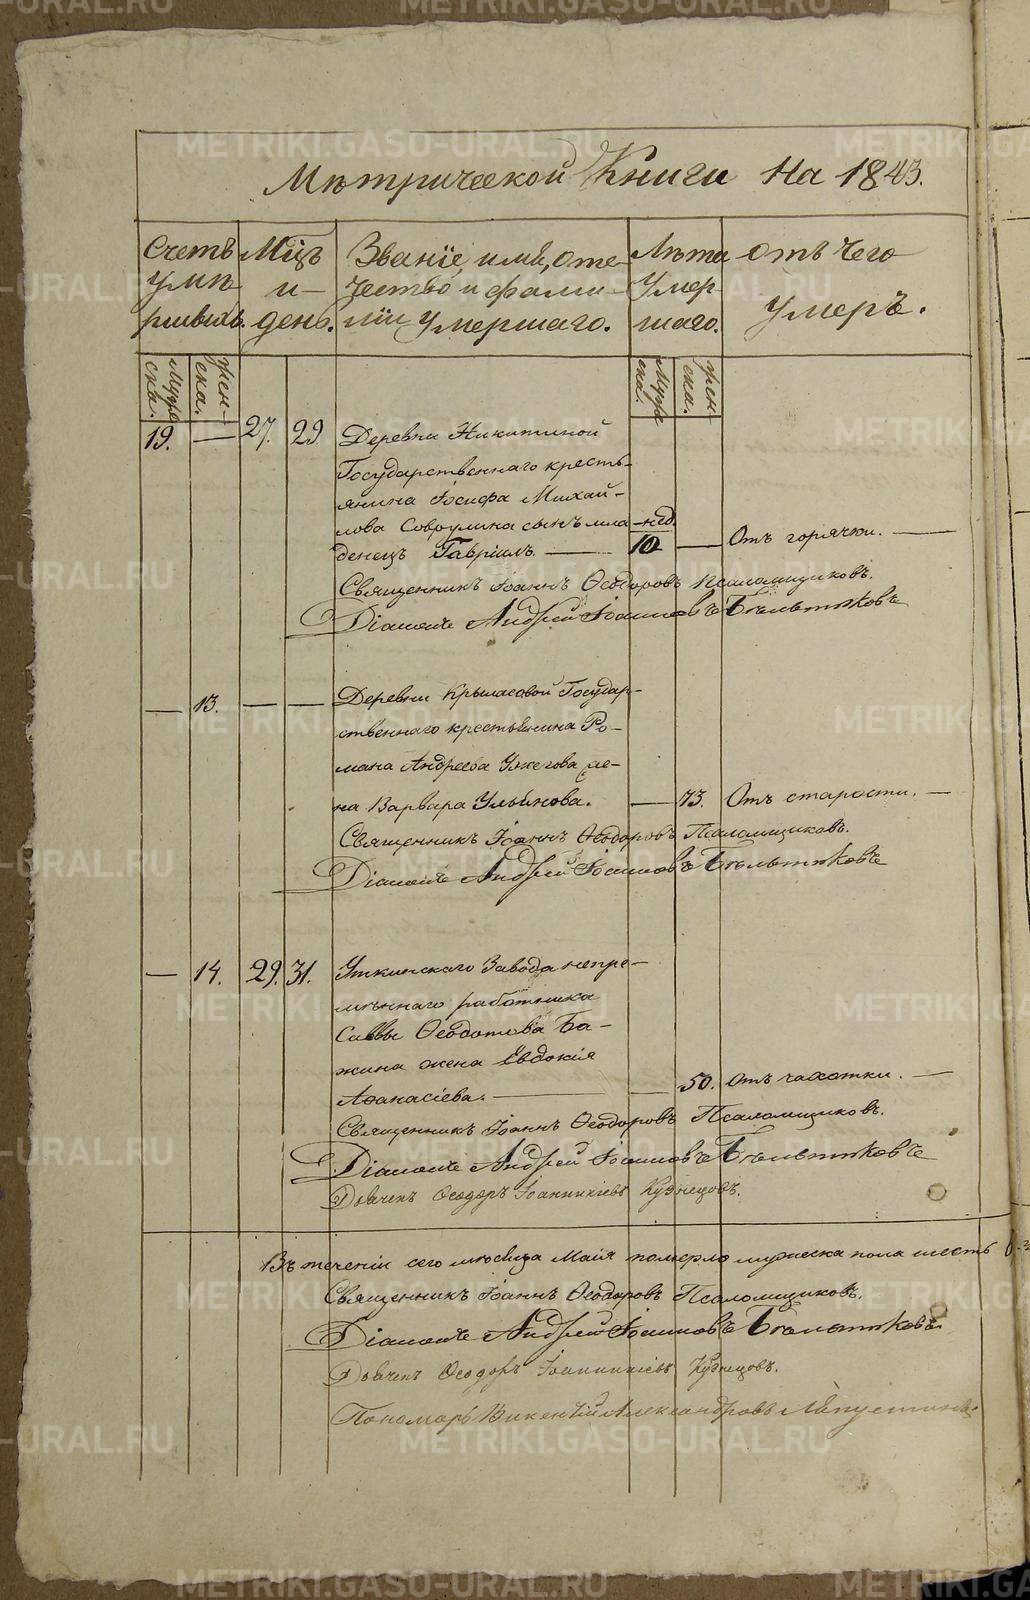 Метрической Книги На 1843.
Счетъ умершихъ. Мцъ и день. Званіе, имя, отечество и фамилія умершаго. Лѣта умершаго. отъ чего умеръ.
Мужеска. женска. Мужеска. женска.
19. — 27. 29. Деревни Никитиной
Государственнаго кресть-
янина Іосифа Михай-
лова Соврулина сынъ мла- нед.
денецъ Гавріилъ. — 10 — Отъ горячки. —
Священникъ Іоаннъ Ѳеодоровъ Псаломщиковъ.
Діаконъ Андрей Іоанновъ Бѣльтюковъ
— 13. — — Деревни Крыласовой Государ-
ственнаго крестьянина Ро-
мана Андреева Ужегова же-
на Варвара Ульянова. — 73. Отъ старости. —
Священникъ Іоаннъ Ѳеодоровъ Псаломщиковъ.
Діаконъ Андрей Іоанновъ Бѣльтюковъ
— 14. 29. 31. Уткинскаго Завода непре-
мѣннаго работника
Саввы Ѳеодотова Ба-
жина жена Евдокія
Аѳанасіева. — — 50. Отъ чахотки. —
Священникъ Іоаннъ Ѳеодоровъ Псаломщиковъ.
Діаконъ Андрей Іоанновъ Бѣльтюковъ
Дьячекъ Ѳеодоръ Іоанникіевъ Кузнецовъ.
Въ теченіи сего мѣсяца Маія померло мужеска пола шесть
Священникъ Іоаннъ Ѳеодоровъ Псаломщиковъ.
Діаконъ Андрей Іоанновъ Бѣльтюковъ
Дьячекъ Ѳеодоръ Іоанникіевъ Кузнецовъ.
Пономарь Викентій Александровъ Ляпустинъ
METRIKI.GASO-URAL.RU